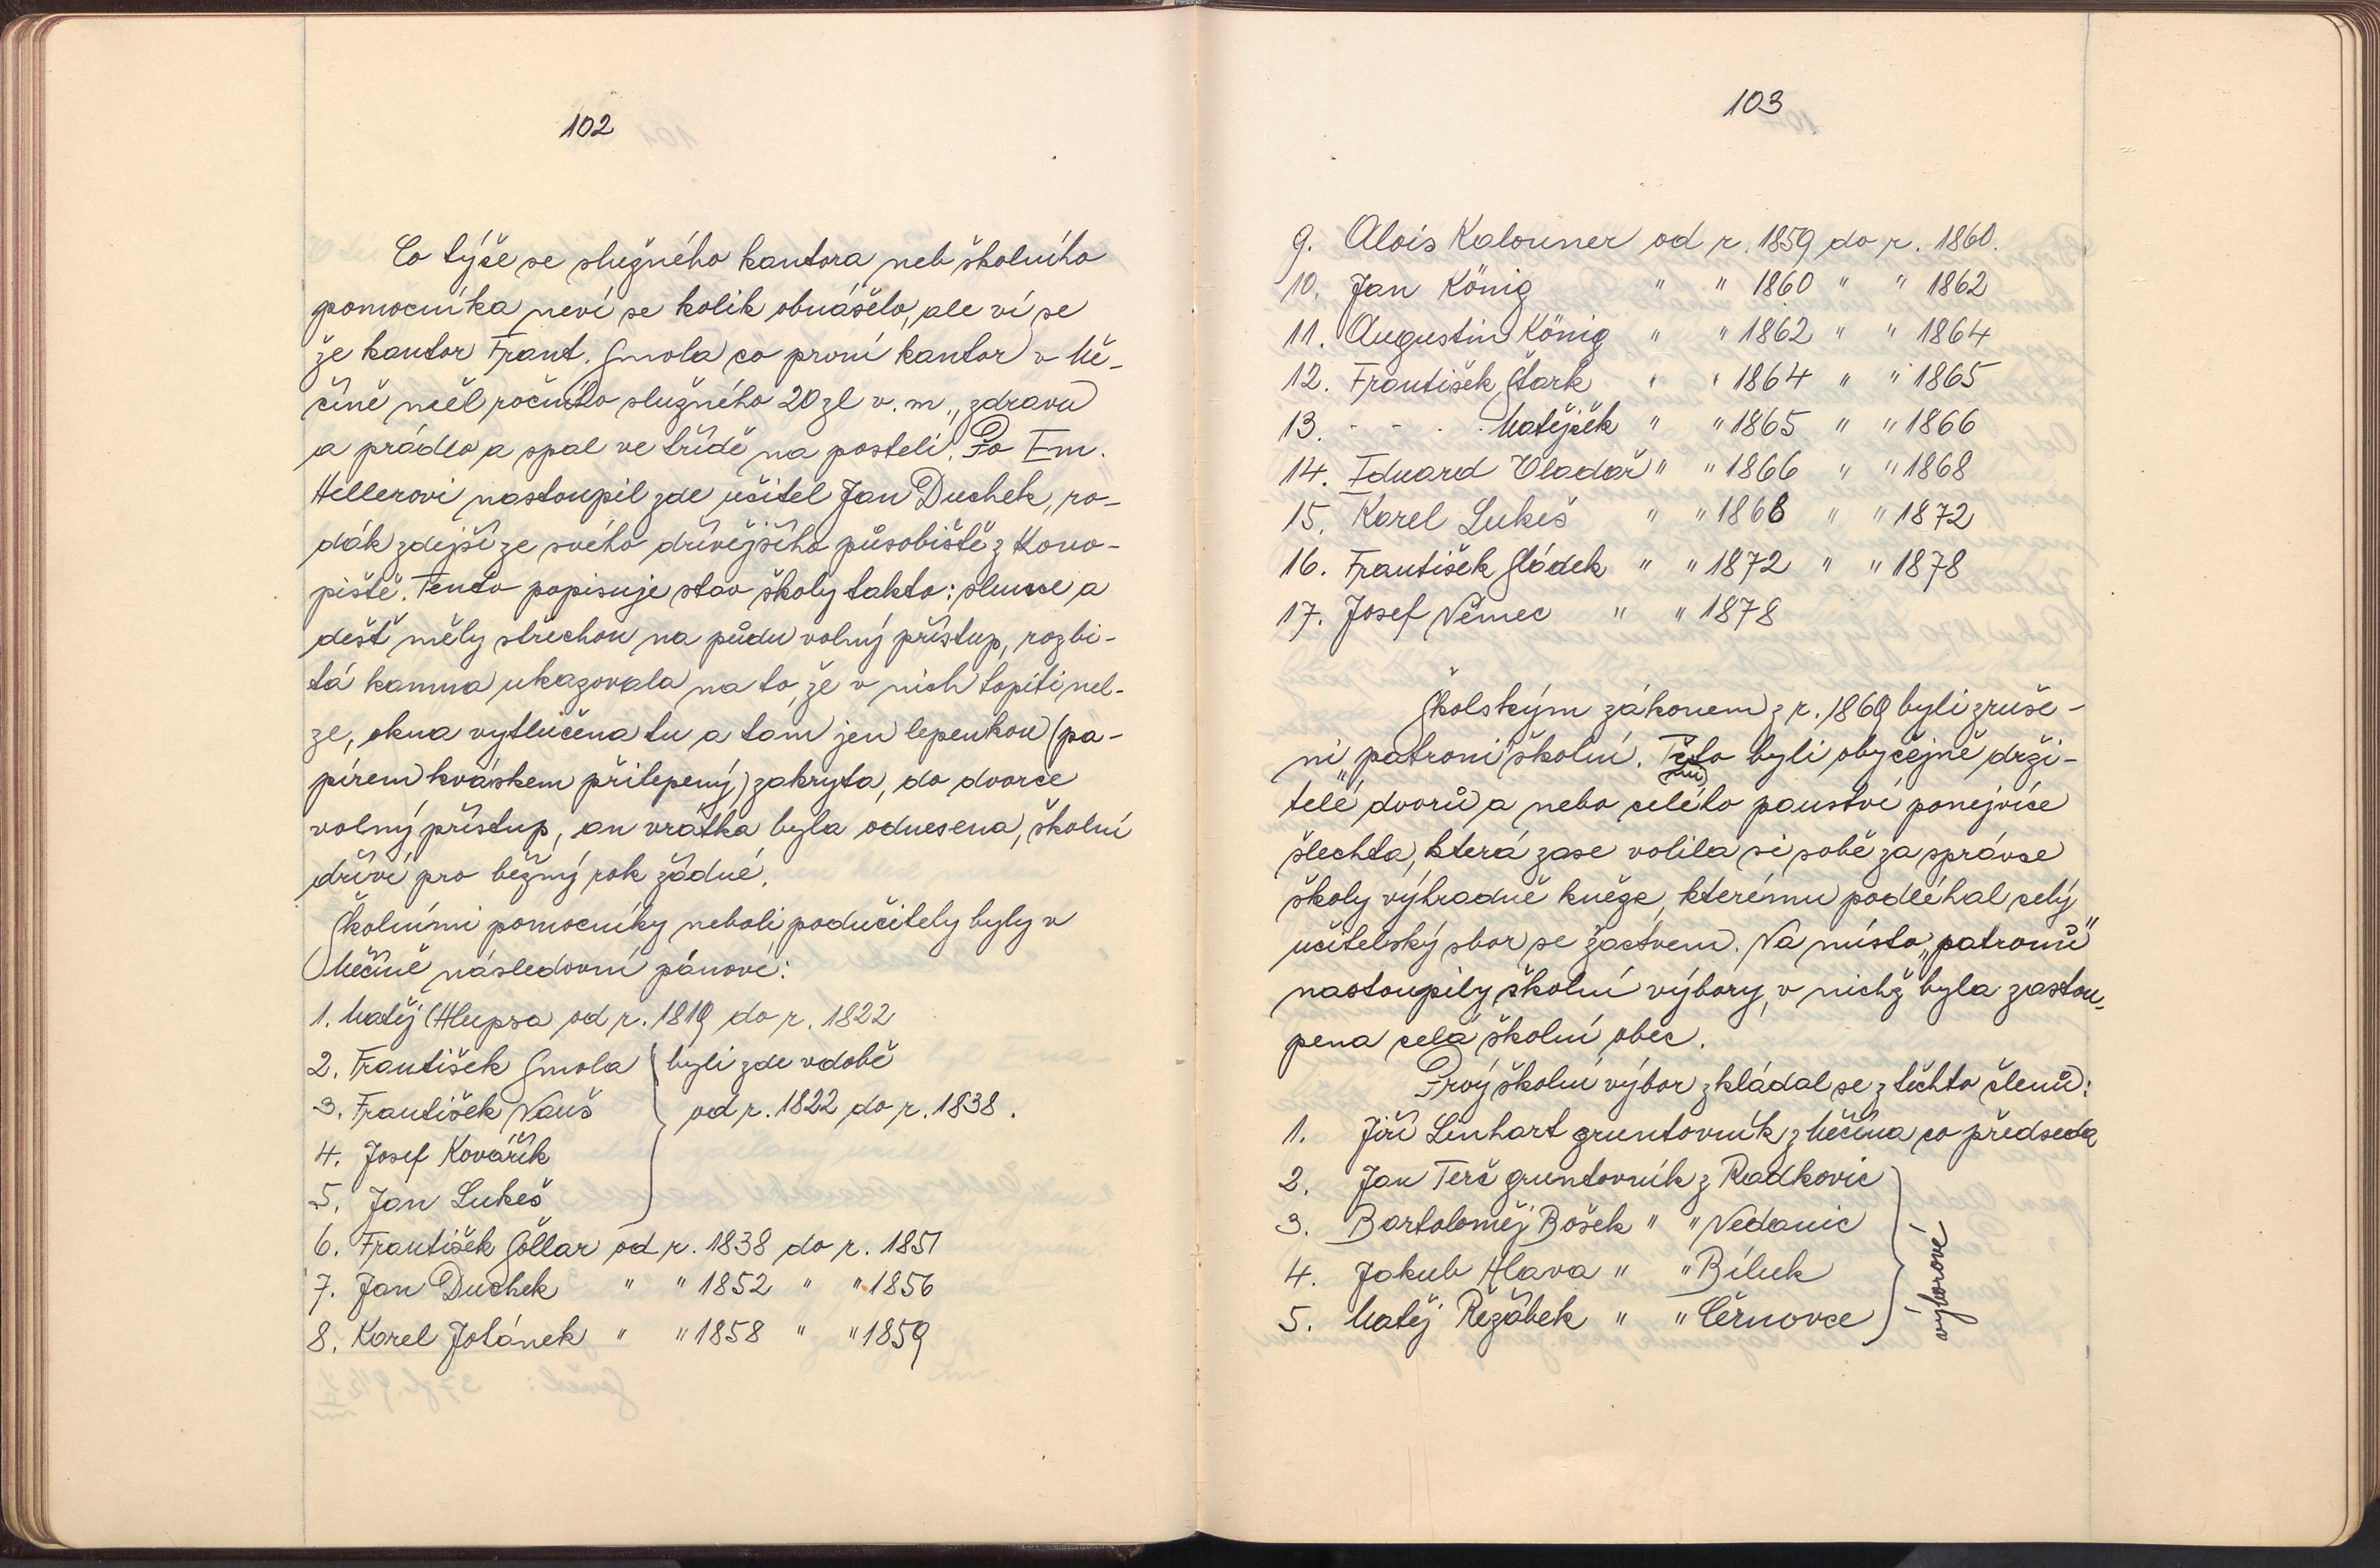 102
Co týče se služného kantora neb školního
pomocníka neví se kolik obnášelo, ale ví se
že kantor Frant. Smola co první kantor v Mě-
číně měl ročního služného 20 zl v. m., zdravu
a prádlo a spal ve třídě na posteli. Po Em.
Hellerovi nastoupil zde učitel Jan Duchek, ro-
dák zdejší ze svého dřívějšího působiště z Kono-
piště. Tento popisuje stav školy takto: slunce a
déšť měly střechou na půdu volný přístup, rozbi-
tá kamna ukazovala na to, že v nich topiti nel-
ze, okna vytlučena tu a tam jen lepenkou (pa-
pírem kváskem přilepený) zakryta, do dvorce
volný přístup, an vrátka byla odnesena, školní
dříví pro běžný rok žádné.
Školními pomocníky neboli podučitely byly v
Měčíně následovní pánové:
1. Matěj Hlupsa od r. 1819 do r. 1822
2. František Smola } byli zde v době
3. František Nauš } od r. 1822 do r. 1838.
4. Josef Kovářík
5. Jan Lukeš
6. František Šollar od r. 1838 do r. 1851
7. Jan Duchek " " 1852 " " 1856
8. Karel Jotánek " " 1858 " " 1859
103
9. Alois Kalouner od r. 1859 do r. 1860.
10. Jan König " " 1860 " " 1862
11. Augustin König " " 1862 " " 1864
12. František Stark " " 1864 " " 1865
13. - - . . Matějček " " 1865 " " 1866
14. Eduard Vladař " " 1866 " " 1868
15. Karel Lukeš " " 1868 " " 1872
16. František Sládek " " 1872 " " 1878
17. Josef Němec " " 1878
Školským zákonem z r. 1869 byli zruše-
ni "patroni" školní. Tito byli obyčejně drži-
telé dvorů a nebo celého panství ponejvíce
šlechta, která zase volila si sobě za správce
školy výhradně kněze, kterému podléhal celý
učitelský sbor se žactvem. Na místo „patronů"
nastoupily školní výbory, v nichž byla zastou-
pena celá školní obec.
Prvý školní výbor zkládal se z těchto členů:
1. Jiří Linhart gruntovník z Měčína co předseda
2. Jan Terč gruntovník z Radkovic
3. Bartoloměj Bošek " " Nedanic
4. Jakub Hlava " " Bíluk
5. Matěj Řežábek " " Čérnovce
výborové